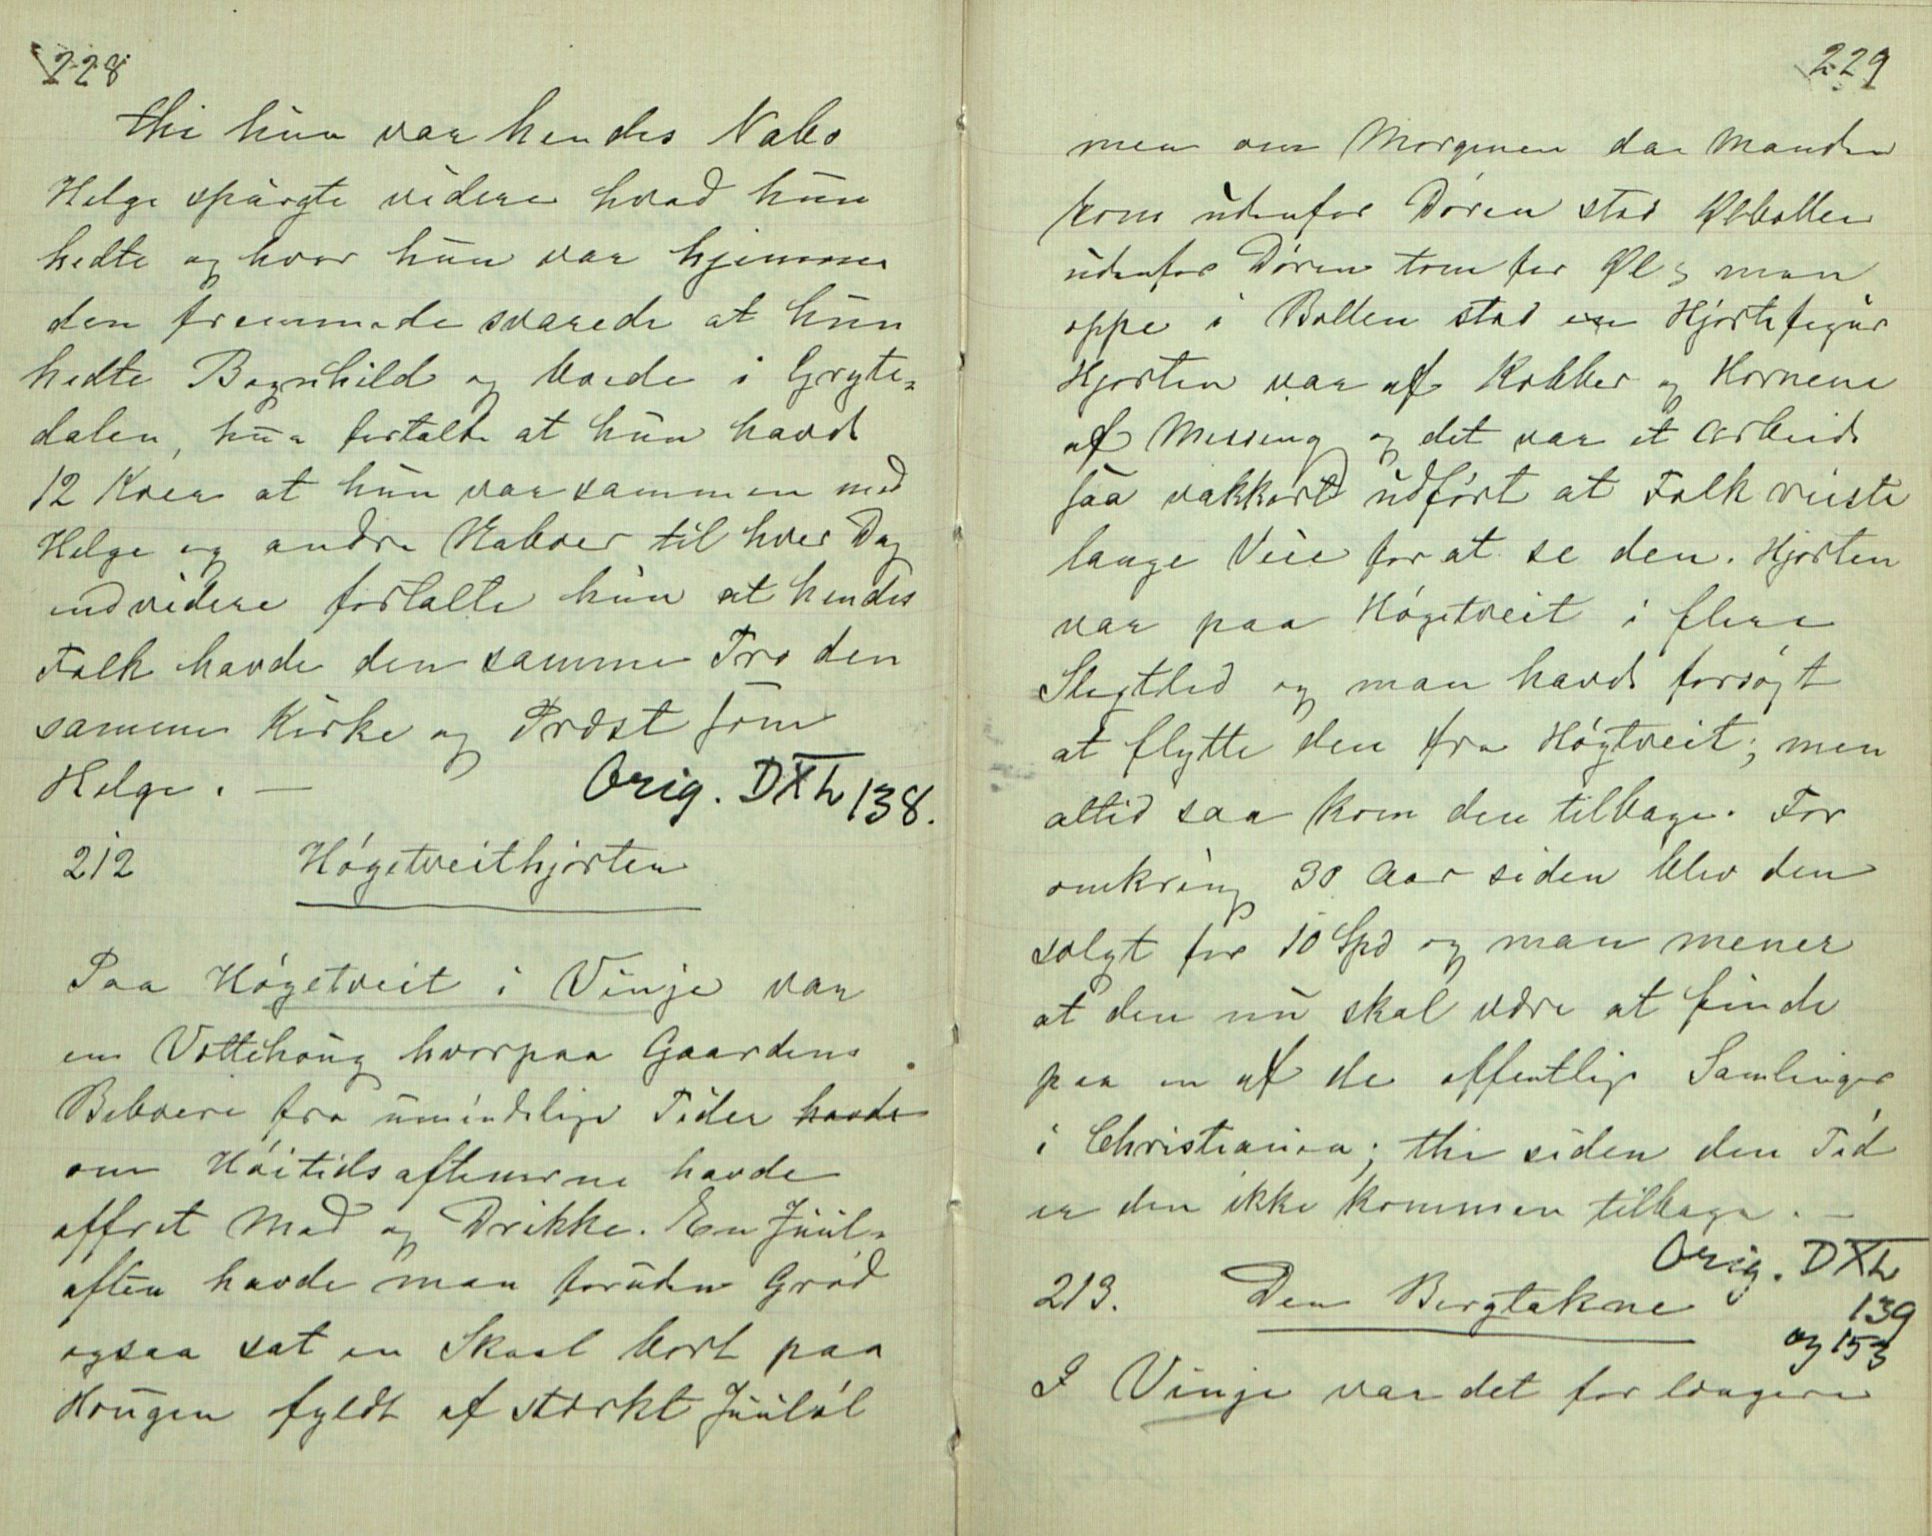 228
thi hun var hendes Nabo
Helge spurgte videre hvad hun
hedte og hvor hun var hjemme
den fremmede svarede at hun
hedte Bognhild og boede i Gryte-
dalen, hun fortalte at hun havde
12 Kver at hun var sammen med
Helge og andre Naboer til hver Dag
endvidere fortalte hun at hendes
Folk havde den samme Tro den
samme Kirke og Præst som
Helge. —
Orig. DXL 138.
212 Høgetveithjorten
Paa Høgetveit i Vinje var
en Vottehoug hvorpaa Gaardens
Beboere fra umindelige Tider havde
om Høitidsaftenerne havde
offret Mad og Drikke. En Juul-
aften havde man foruden Grød
ogsaa sat en Skaal bort paa
Hougen fyldt af stærkt Juuløl
229
men om Morgenen da Manden
kom udenfor Døren stod Ølbollen
udenfor Døren tom for Øl; men
oppe i Bollen stod en Hjortefigur
Hjorten var af Kobber og Hornene
af Messing og det var et Arbeide
saa vakkert udført at Folk reiste
lange Veie for at se den. Hjorten
var paa Høgetveit i flere
Slegtled og man havde forsøgt
at flytte den fra Høgtveit; men
altid saa kom den tilbage. For
omkring 30 Aar siden blev den
solgt for 10 Spd og man mener
at den nu skal være at finde
paa en af de offentlige Samlinger
i Christiania; thi siden den Tid
er den ikke kommen tilbage. —
Orig. DXL
139
og 153
213. Den Bergtakne
I Vinje var det for længere